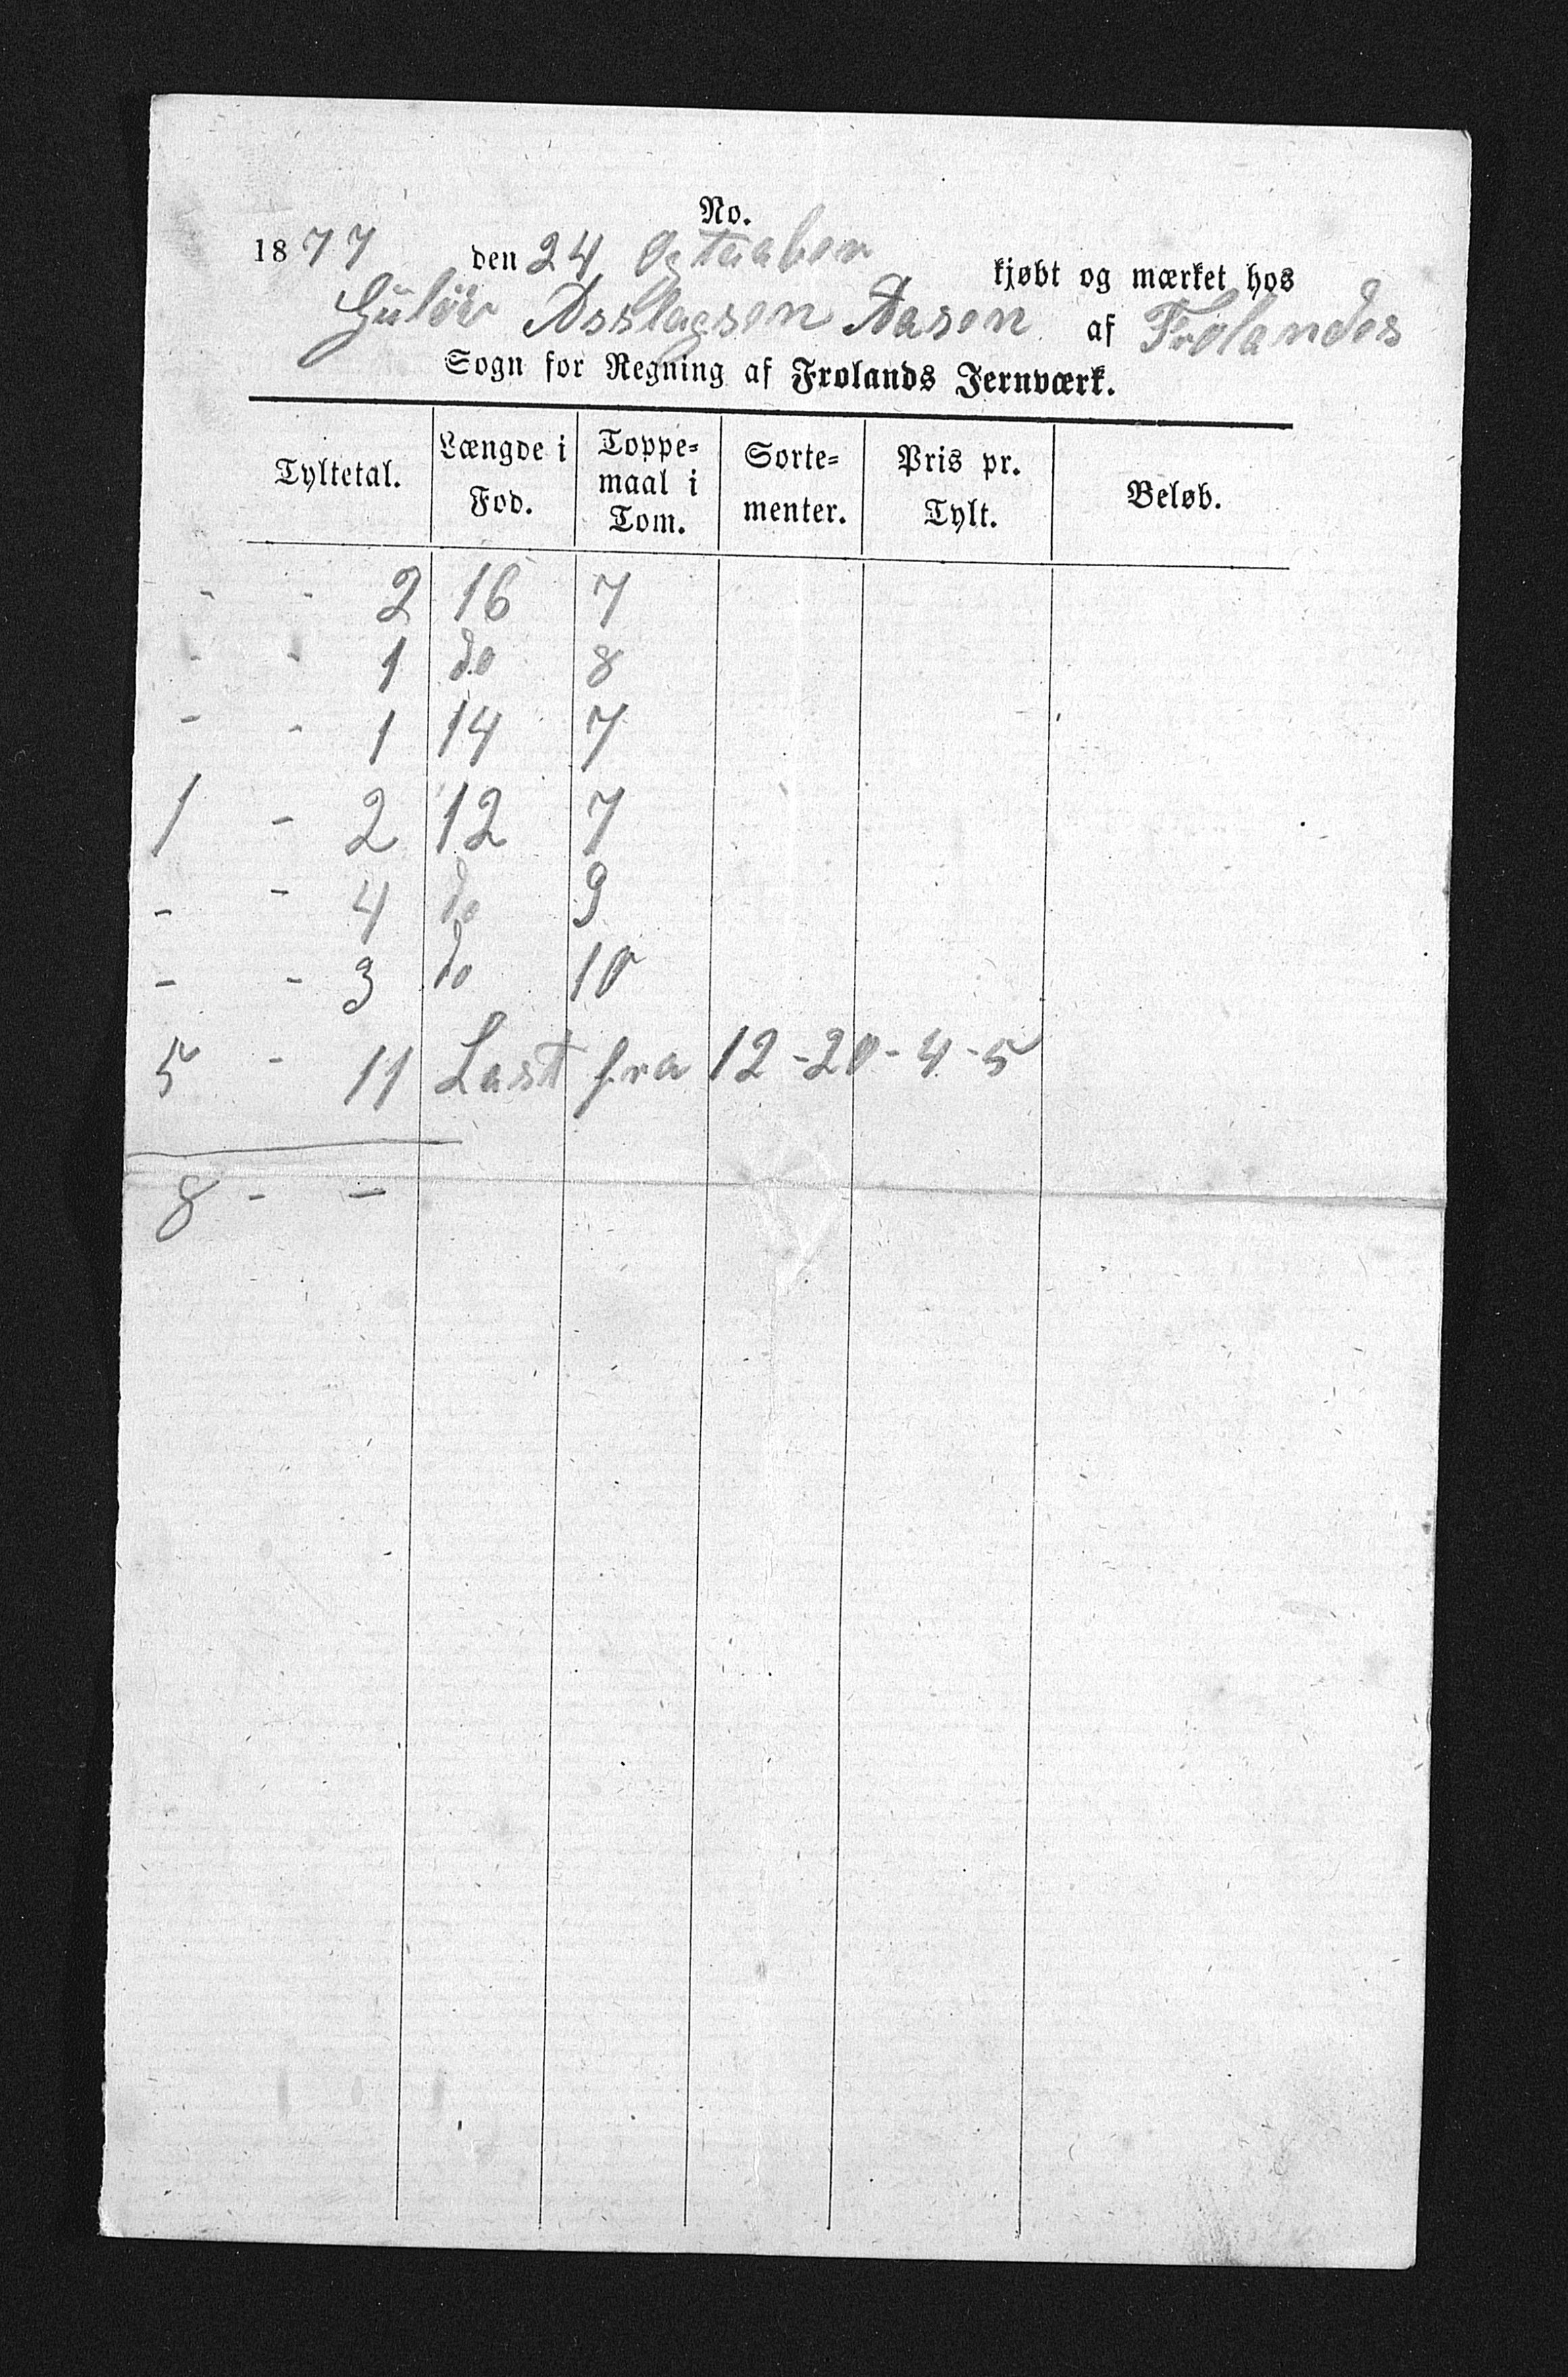 No.
1877 den 24 Ogtaaber kjøbt og mærket hos
Gulöv Asslagsen Aasen af Frolandes
Sogn for Regning af Frolands Jernværk.
Tyltetal. Længde i Fod. Toppe= maal i Tom. Sorte= menter. Pris pr. Tylt. Beløb.
- - 2 16 7
- - 1 do 8
- - 1 14 7
1 - 2 12 7
- - 4 do 9
- - 3 do 10
5 - 11 Last fra 12-20-4-5
8 - -